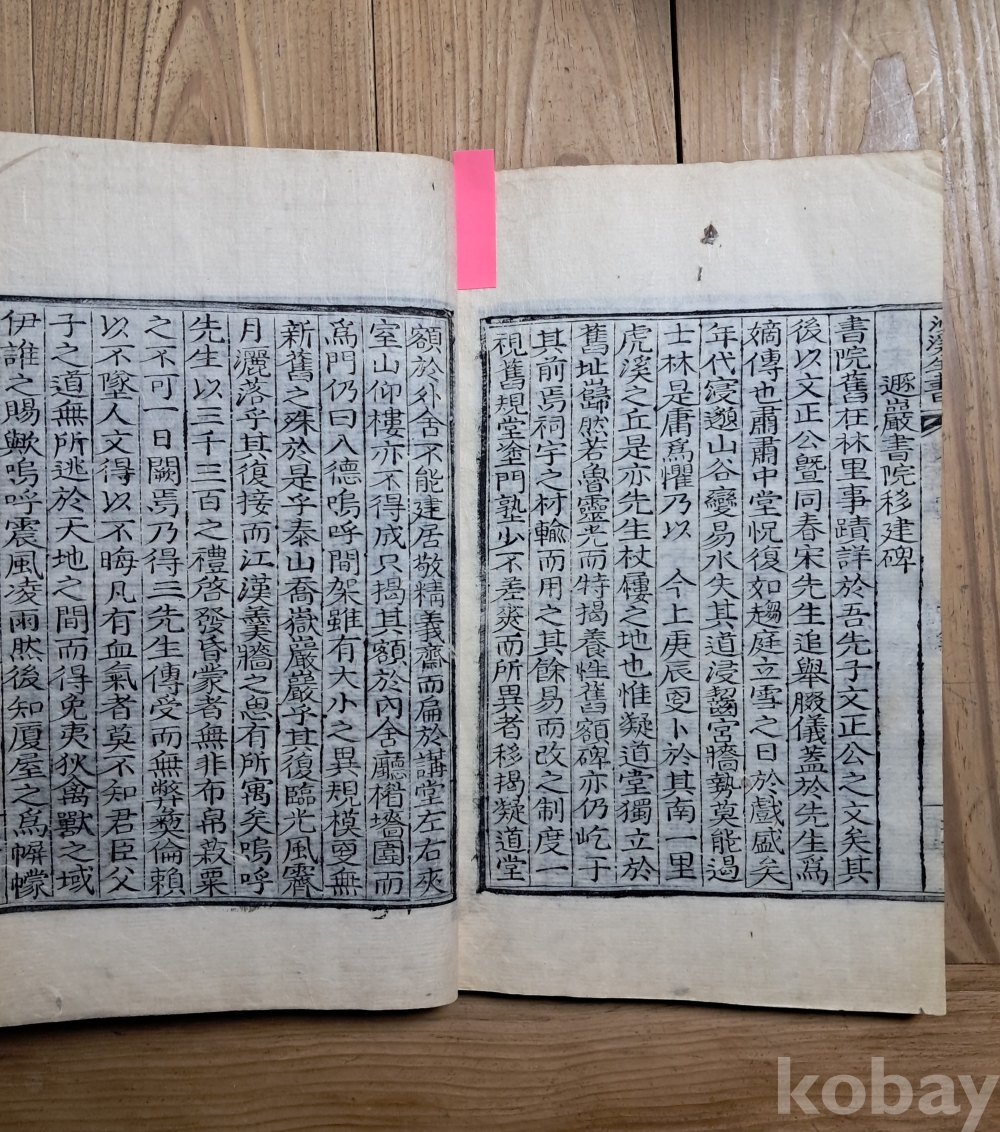 遯巖書院移建碑
書院舊在林里事蹟詳於吾先子文正公之文矣其
後以文正公曁同春宋先生追舉腏儀蓋於先生爲
嫡傳也肅肅中堂怳復如趨庭立雪之日於戲盛矣
年代寖邈山谷變易水失其道浸齧宮牆勢莫能遏
士林是庸爲懼乃以 今上庚辰更卜於其南一里
虎溪之丘是亦先生杖屨之地也惟凝道堂獨立於
舊址巋然若魯靈光而特揭養性舊額碑亦仍屹于
其前焉祠宇之材輸而用之其餘易而改之制度一
視舊規堂塗門塾少不差爽而所異者移揭凝道堂
額於外舍不能建居敬精義齋而扁於講堂左右夾
室山仰樓亦不得成只揭其額於內舍廳楷墻圍而
爲門仍曰入德嗚呼間架雖有大小之異規模更無
新舊之殊於是乎泰山喬嶽巖巖乎其復臨光風霽
月灑落乎其復接而江漢羹牆之思有所寓矣嗚呼
先生以三千三百之禮啓發昏蒙者無非布帛菽粟
之不可一日闕焉乃得三先生傳受而無弊彝倫賴
以不墜人文得以不晦凡有血氣者莫不知君臣父
子之道無所逃於天地之間而得免夷狄禽獸之域
伊誰之賜歟嗚呼震風凌雨然後知厦屋之爲帡幪
kobay